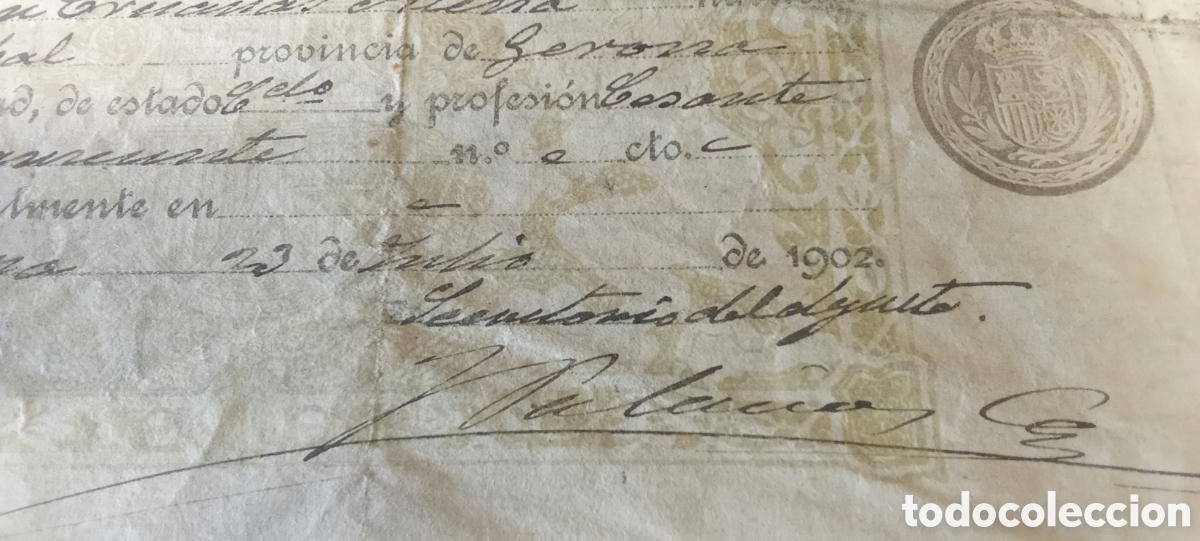 provincia de Gerona
ad, de estado Cdo y profesión Cesante
n.º cto.
lmente en
23 de Julio de 1902.
Secretario del Ayunto.
Palacios
todocoleccion